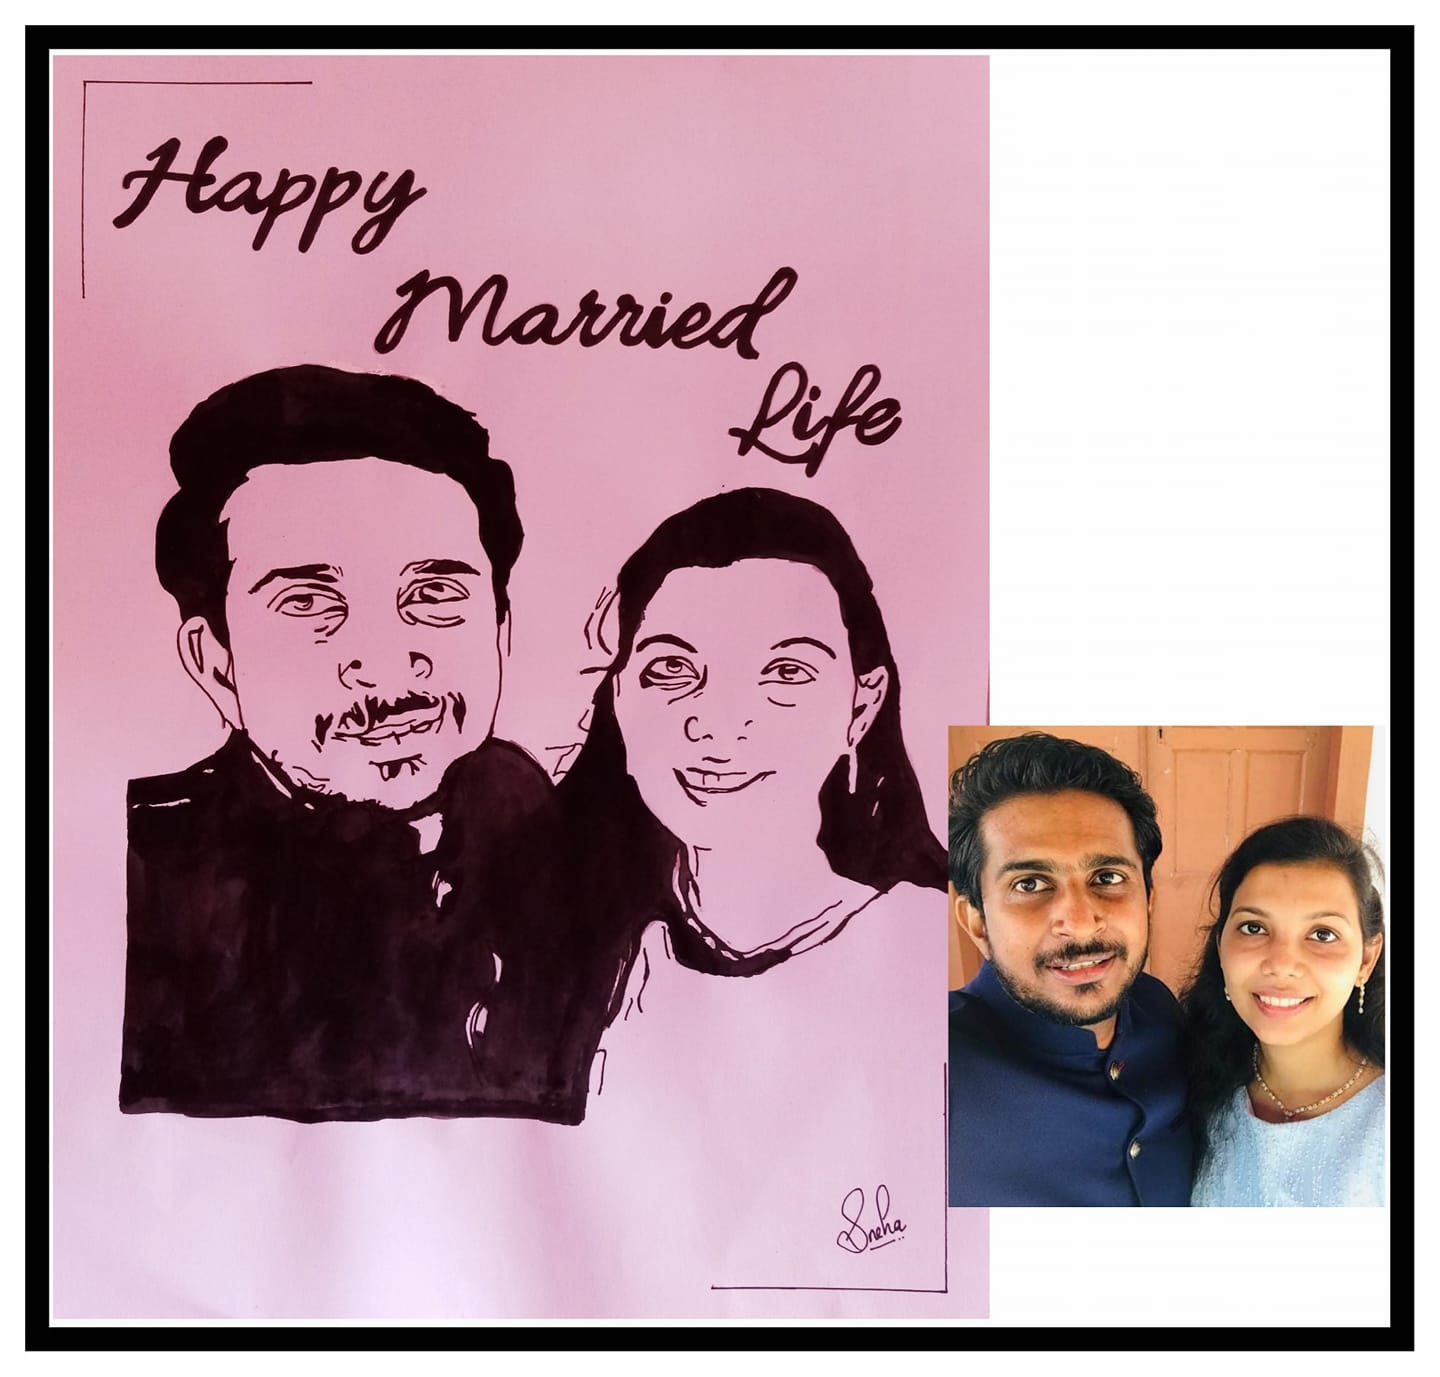 Happy
Married
Life
Sneha